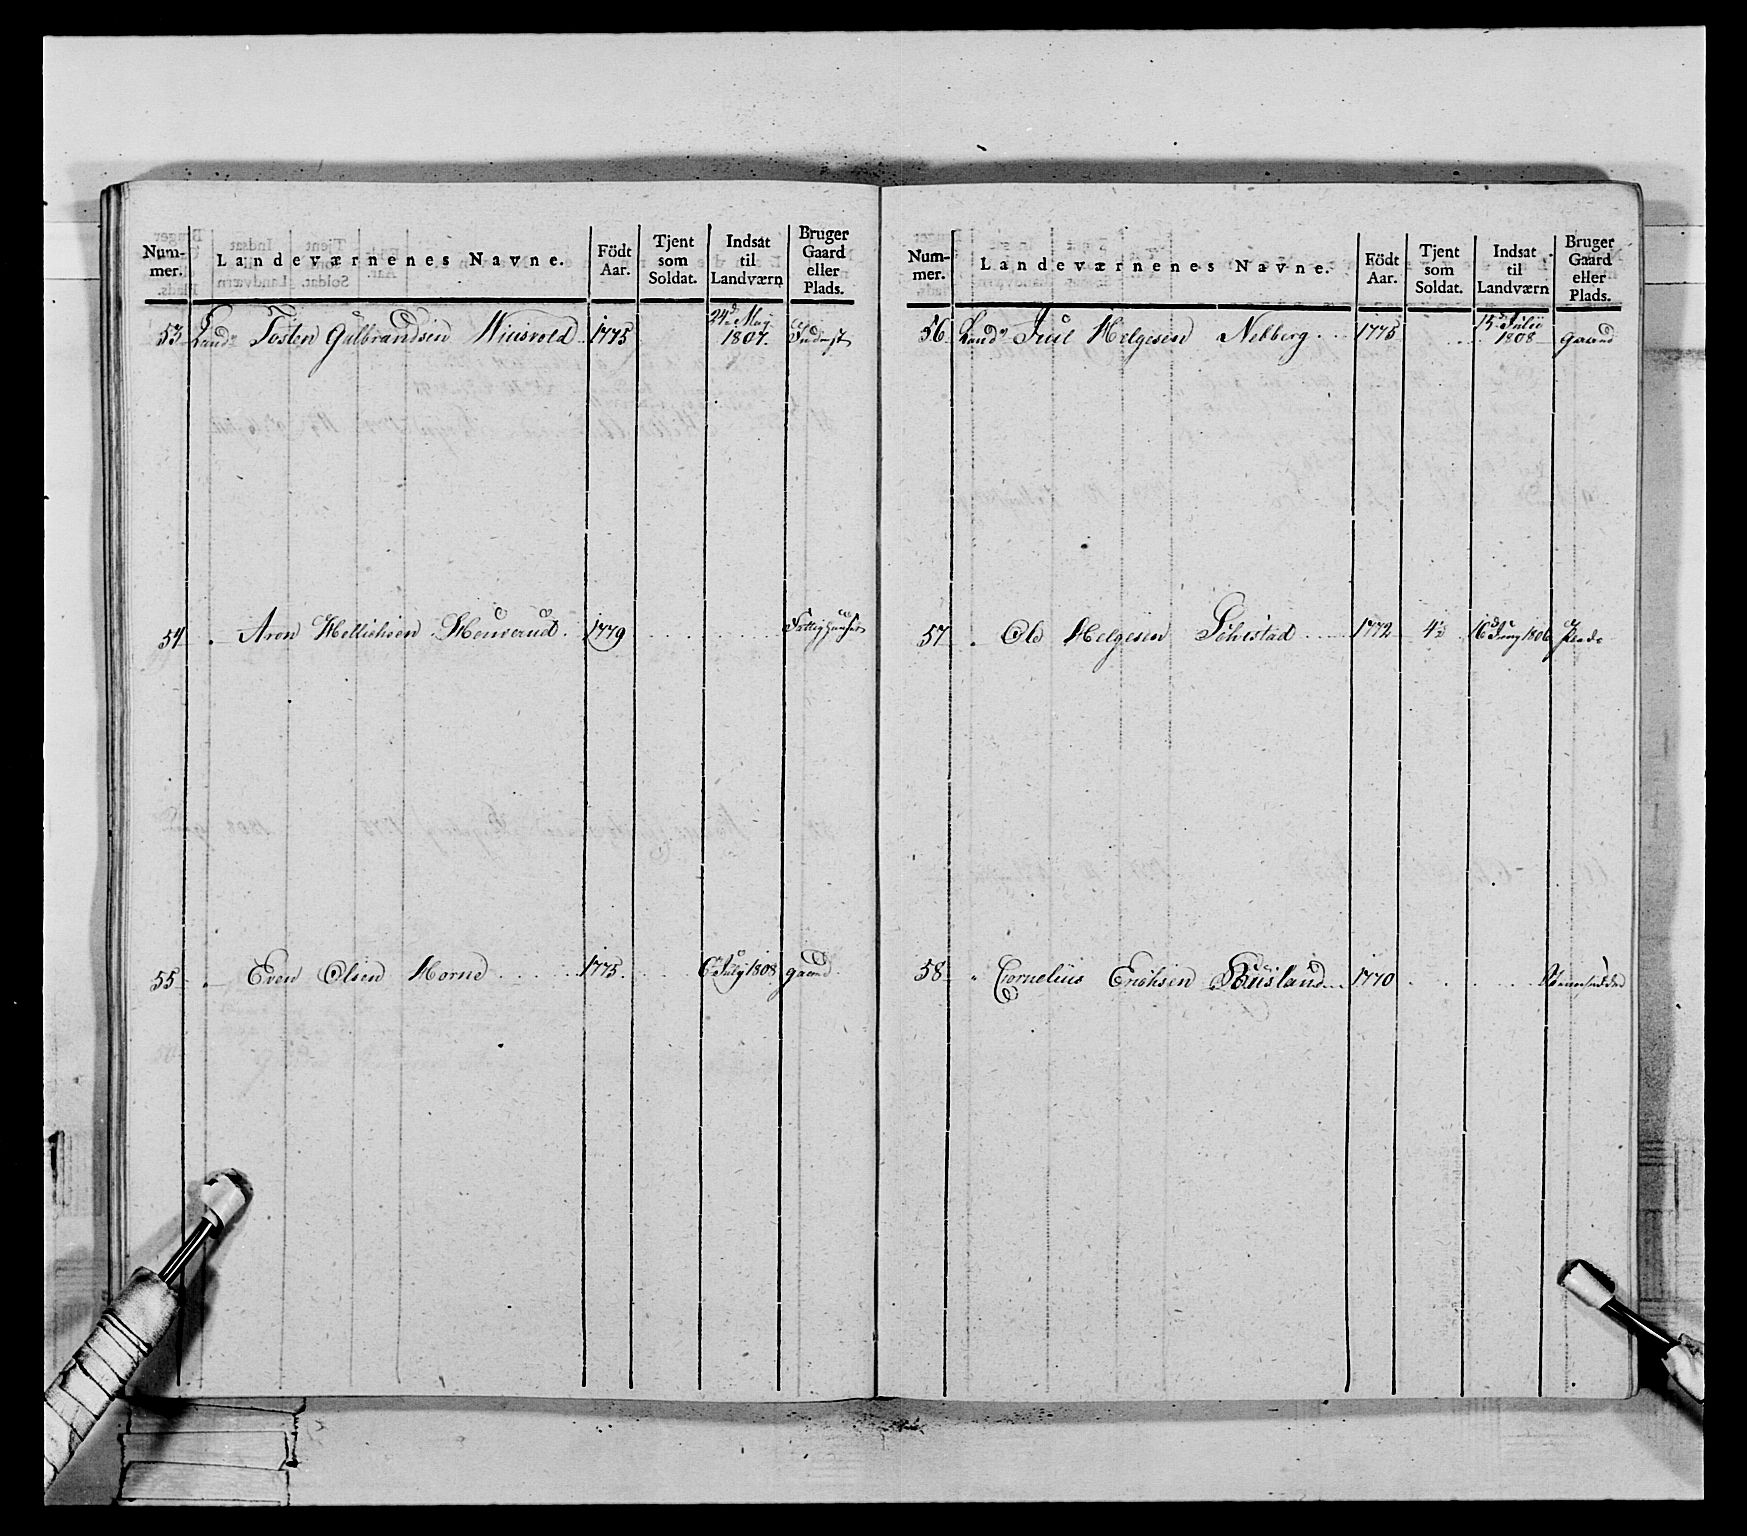 Num-mer. Landeværnenes Navne. Födt Aar. Tjent som Soldat. Indsat til Landværn Bruger Gaard eller Plads.
53 Land: Tosten Gulbrandsen 1775 24de May 1807.
54 Aron 1779
55 Even Olsen Horne 1775. 6 July 1808 gaard.
Num-mer. Landeværnenes Navne. Födt Aar. Tjent som Soldat. Indsat til Landværn Bruger Gaard eller Plads.
56 Land: Juul Helgesen Nebberg 1775 15de Julii 1808 gaard
57 Ole Helgesen 1772 4½ 16 1806 Plads
58 Cornelius Erichsen 1770